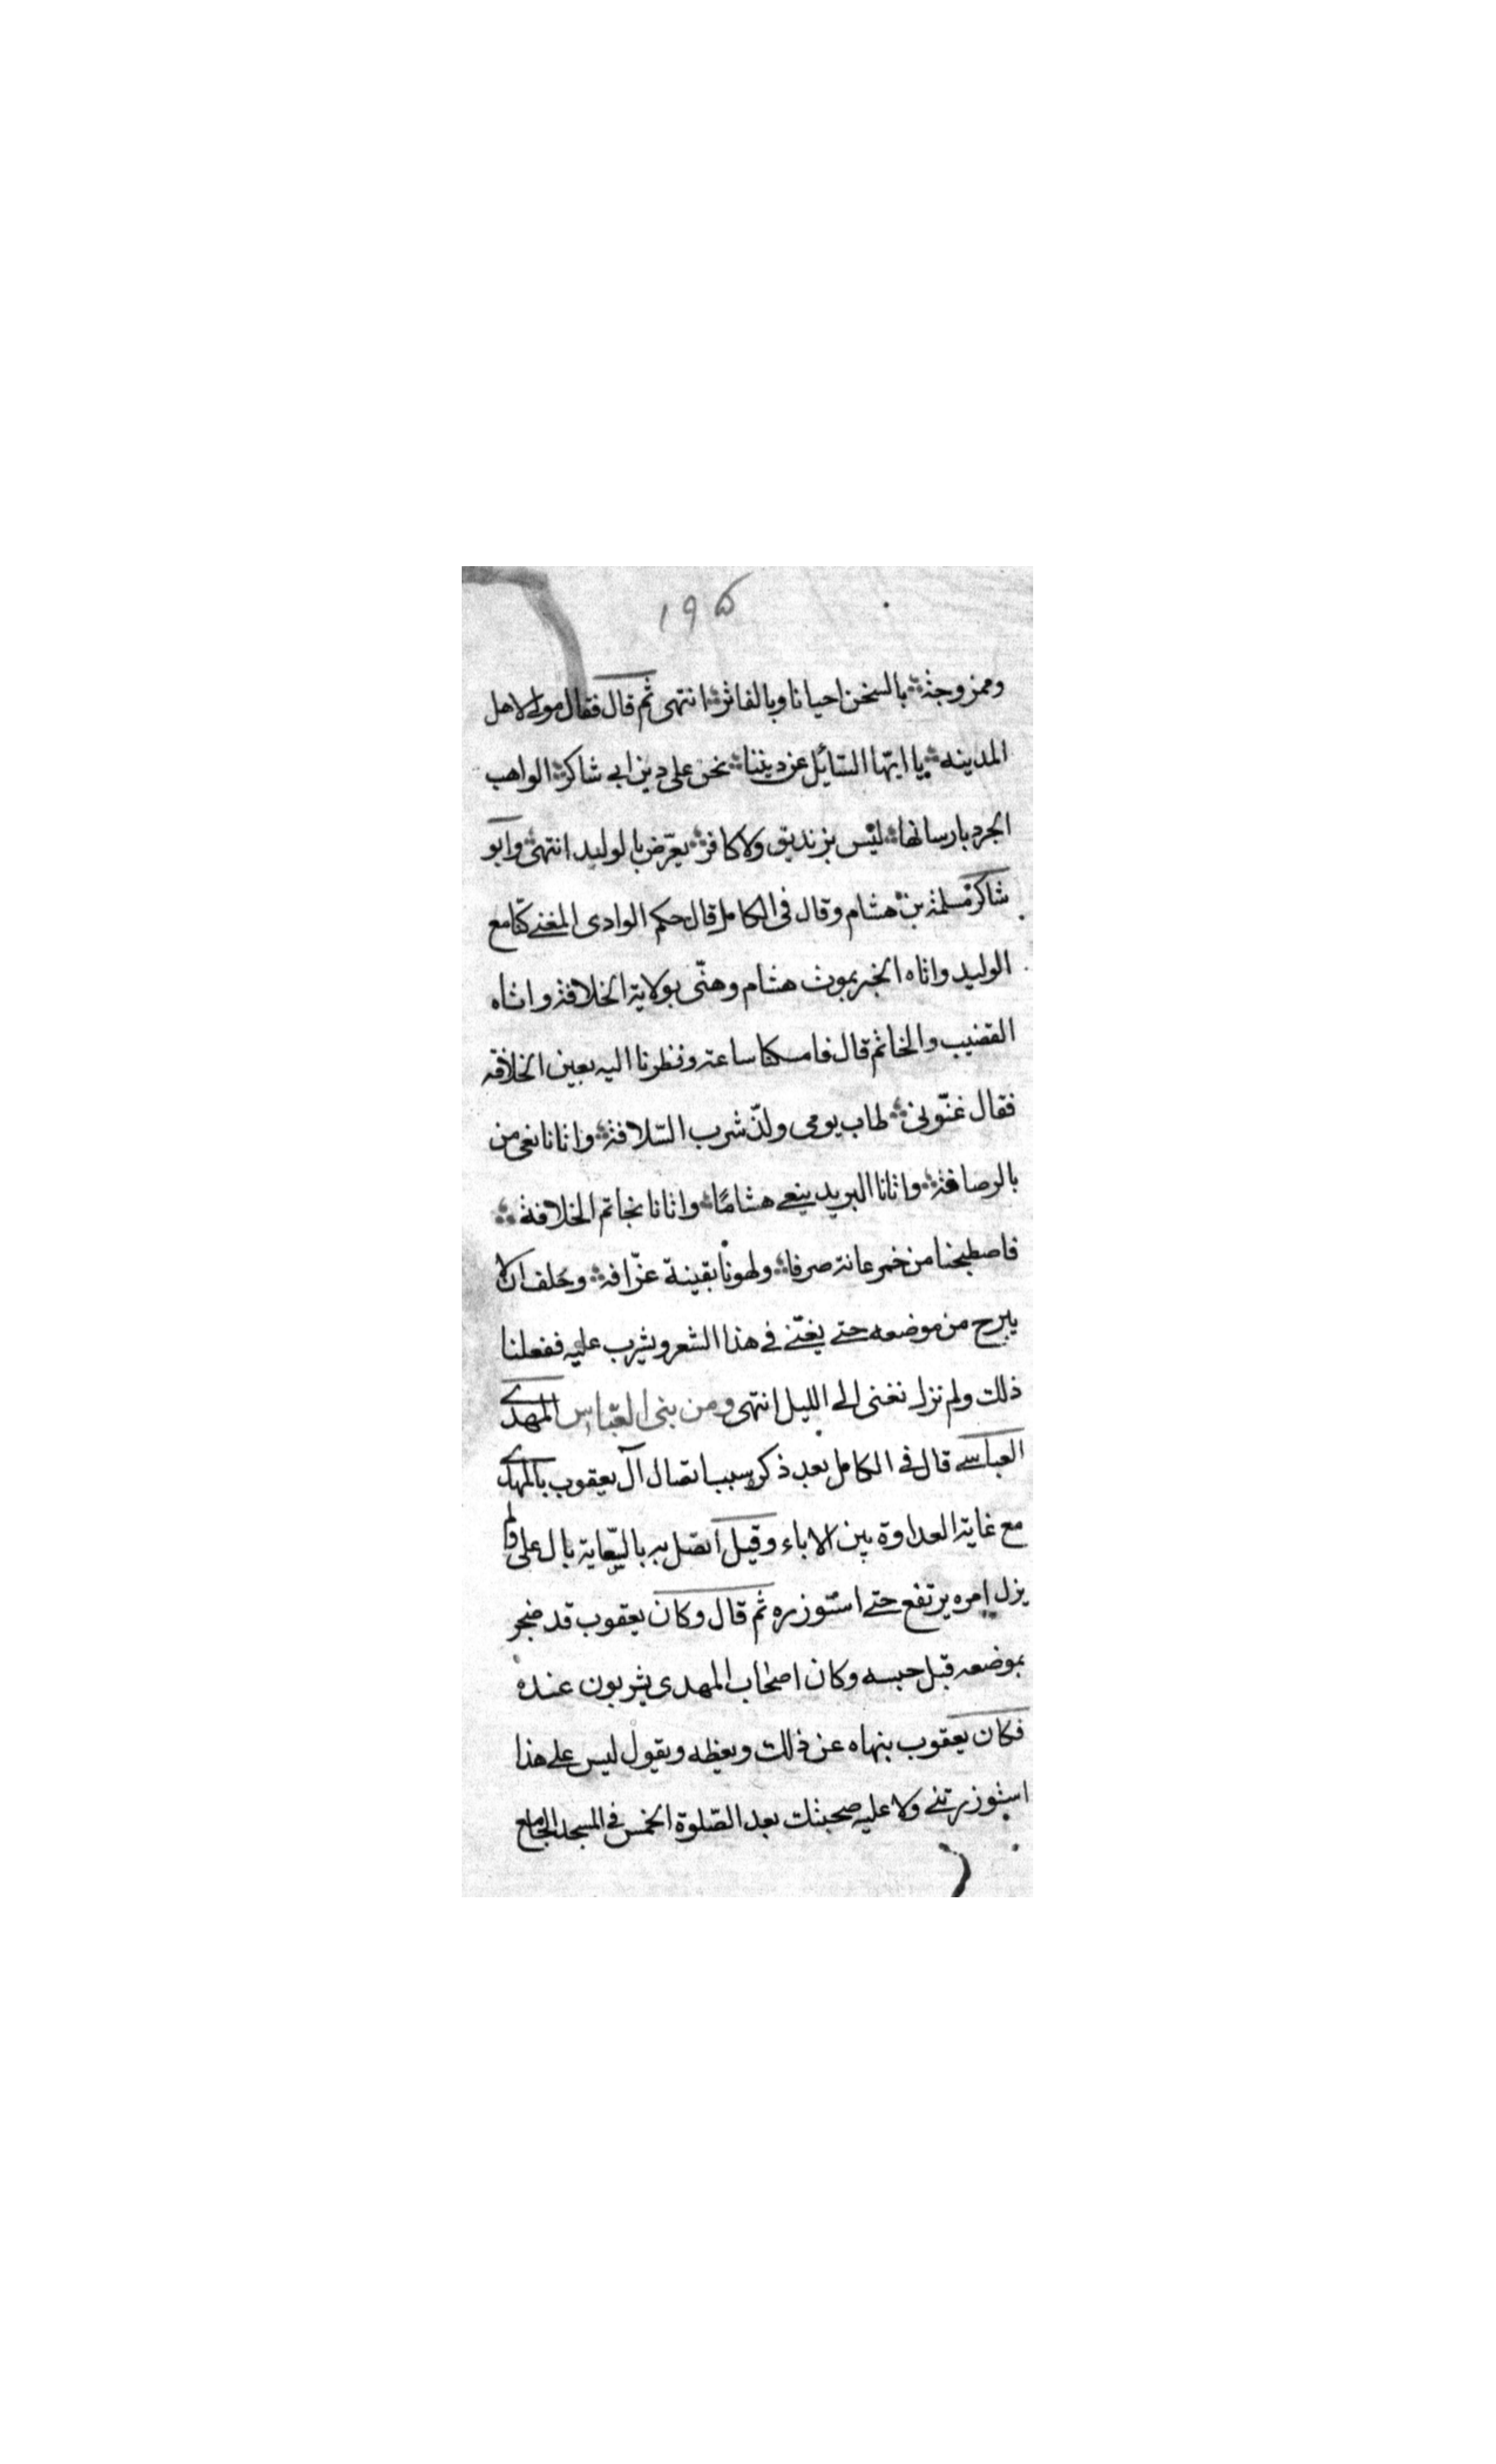 ١٩۵
وممزوجة بالسخن احيانا وبالفاتر انتهى ثم قال فقال مولى لاهل
المدينه يا ايها السائل عن ديننا نحن على دين ابى شاكر الواهب
الجرد بارسانها ليس بزنديق ولا كافر يعرّض بالوليد انتهى وابو
شاكر مسلمة بن هشام وقال فى الكامل قال حكم الوادى المغنى كنّا مع
الوليد واتاه الخبر بموت هشام وهنّى بولاية الخلافة واتاه
القضيب والخاتم قال فامسكنا ساعة ونظرنا اليه بعين الخلافة
فقال غنّونى طاب يومى ولذّ شرب السّلافة واتانا نعى من
بالرصافة واتانا البريد ينعى هشامًا واتانا بخاتم الخلافة
فاصطبحنا من خمر عانة صرفا ولهونا بقينة عزّافة وحلف ان لا
يبرح من موضعه حتى يغنّى فى هذا الشعر ويشرب عليه ففعلنا
ذلك ولم نزل نغنى الى الليل انتهى ومن بنى العبّاس المهدى
العباسى قال فى الكامل بعد ذكر سبب اتصال آل يعقوب بالمهدى
مع غاية العداوة بين الاباء وقيل اتصل به بالسّعاية بال على ولم
يزل امره يرتفع حتى استوزره ثم قال وكان يعقوب قد ضجر
بموضعه قبل حبسه وكان اصحاب المهدى يشربون عنده
فكان يعقوب ينهاه عن ذلك ويعظه ويقول ليس على هذا
استوزرتنى ولا عليه صحبتك بعد الصّلوة الخمس فى المسجد الجامع